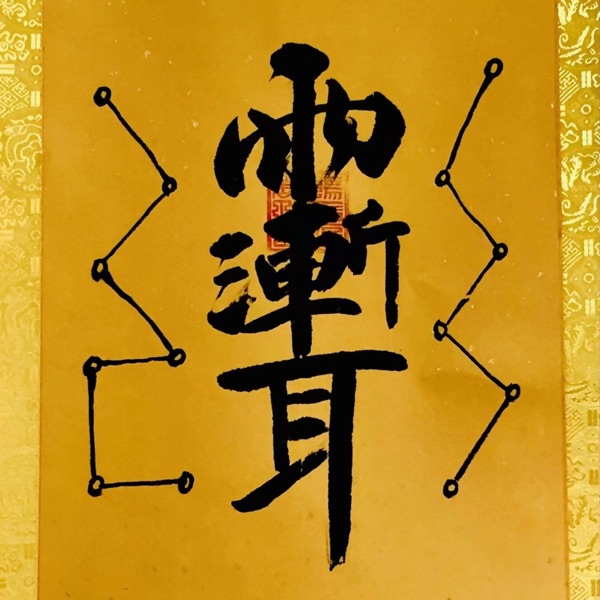 雨漸耳